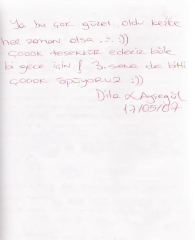 Ya bu çok güzel oldu keşke
her zaman olsa ... :))
çoook teşekkür ederiz böle
bi gece için! 3. sene de bitti
çoook öpüyoruz :))
Dila & Ayşegül
17/05/07